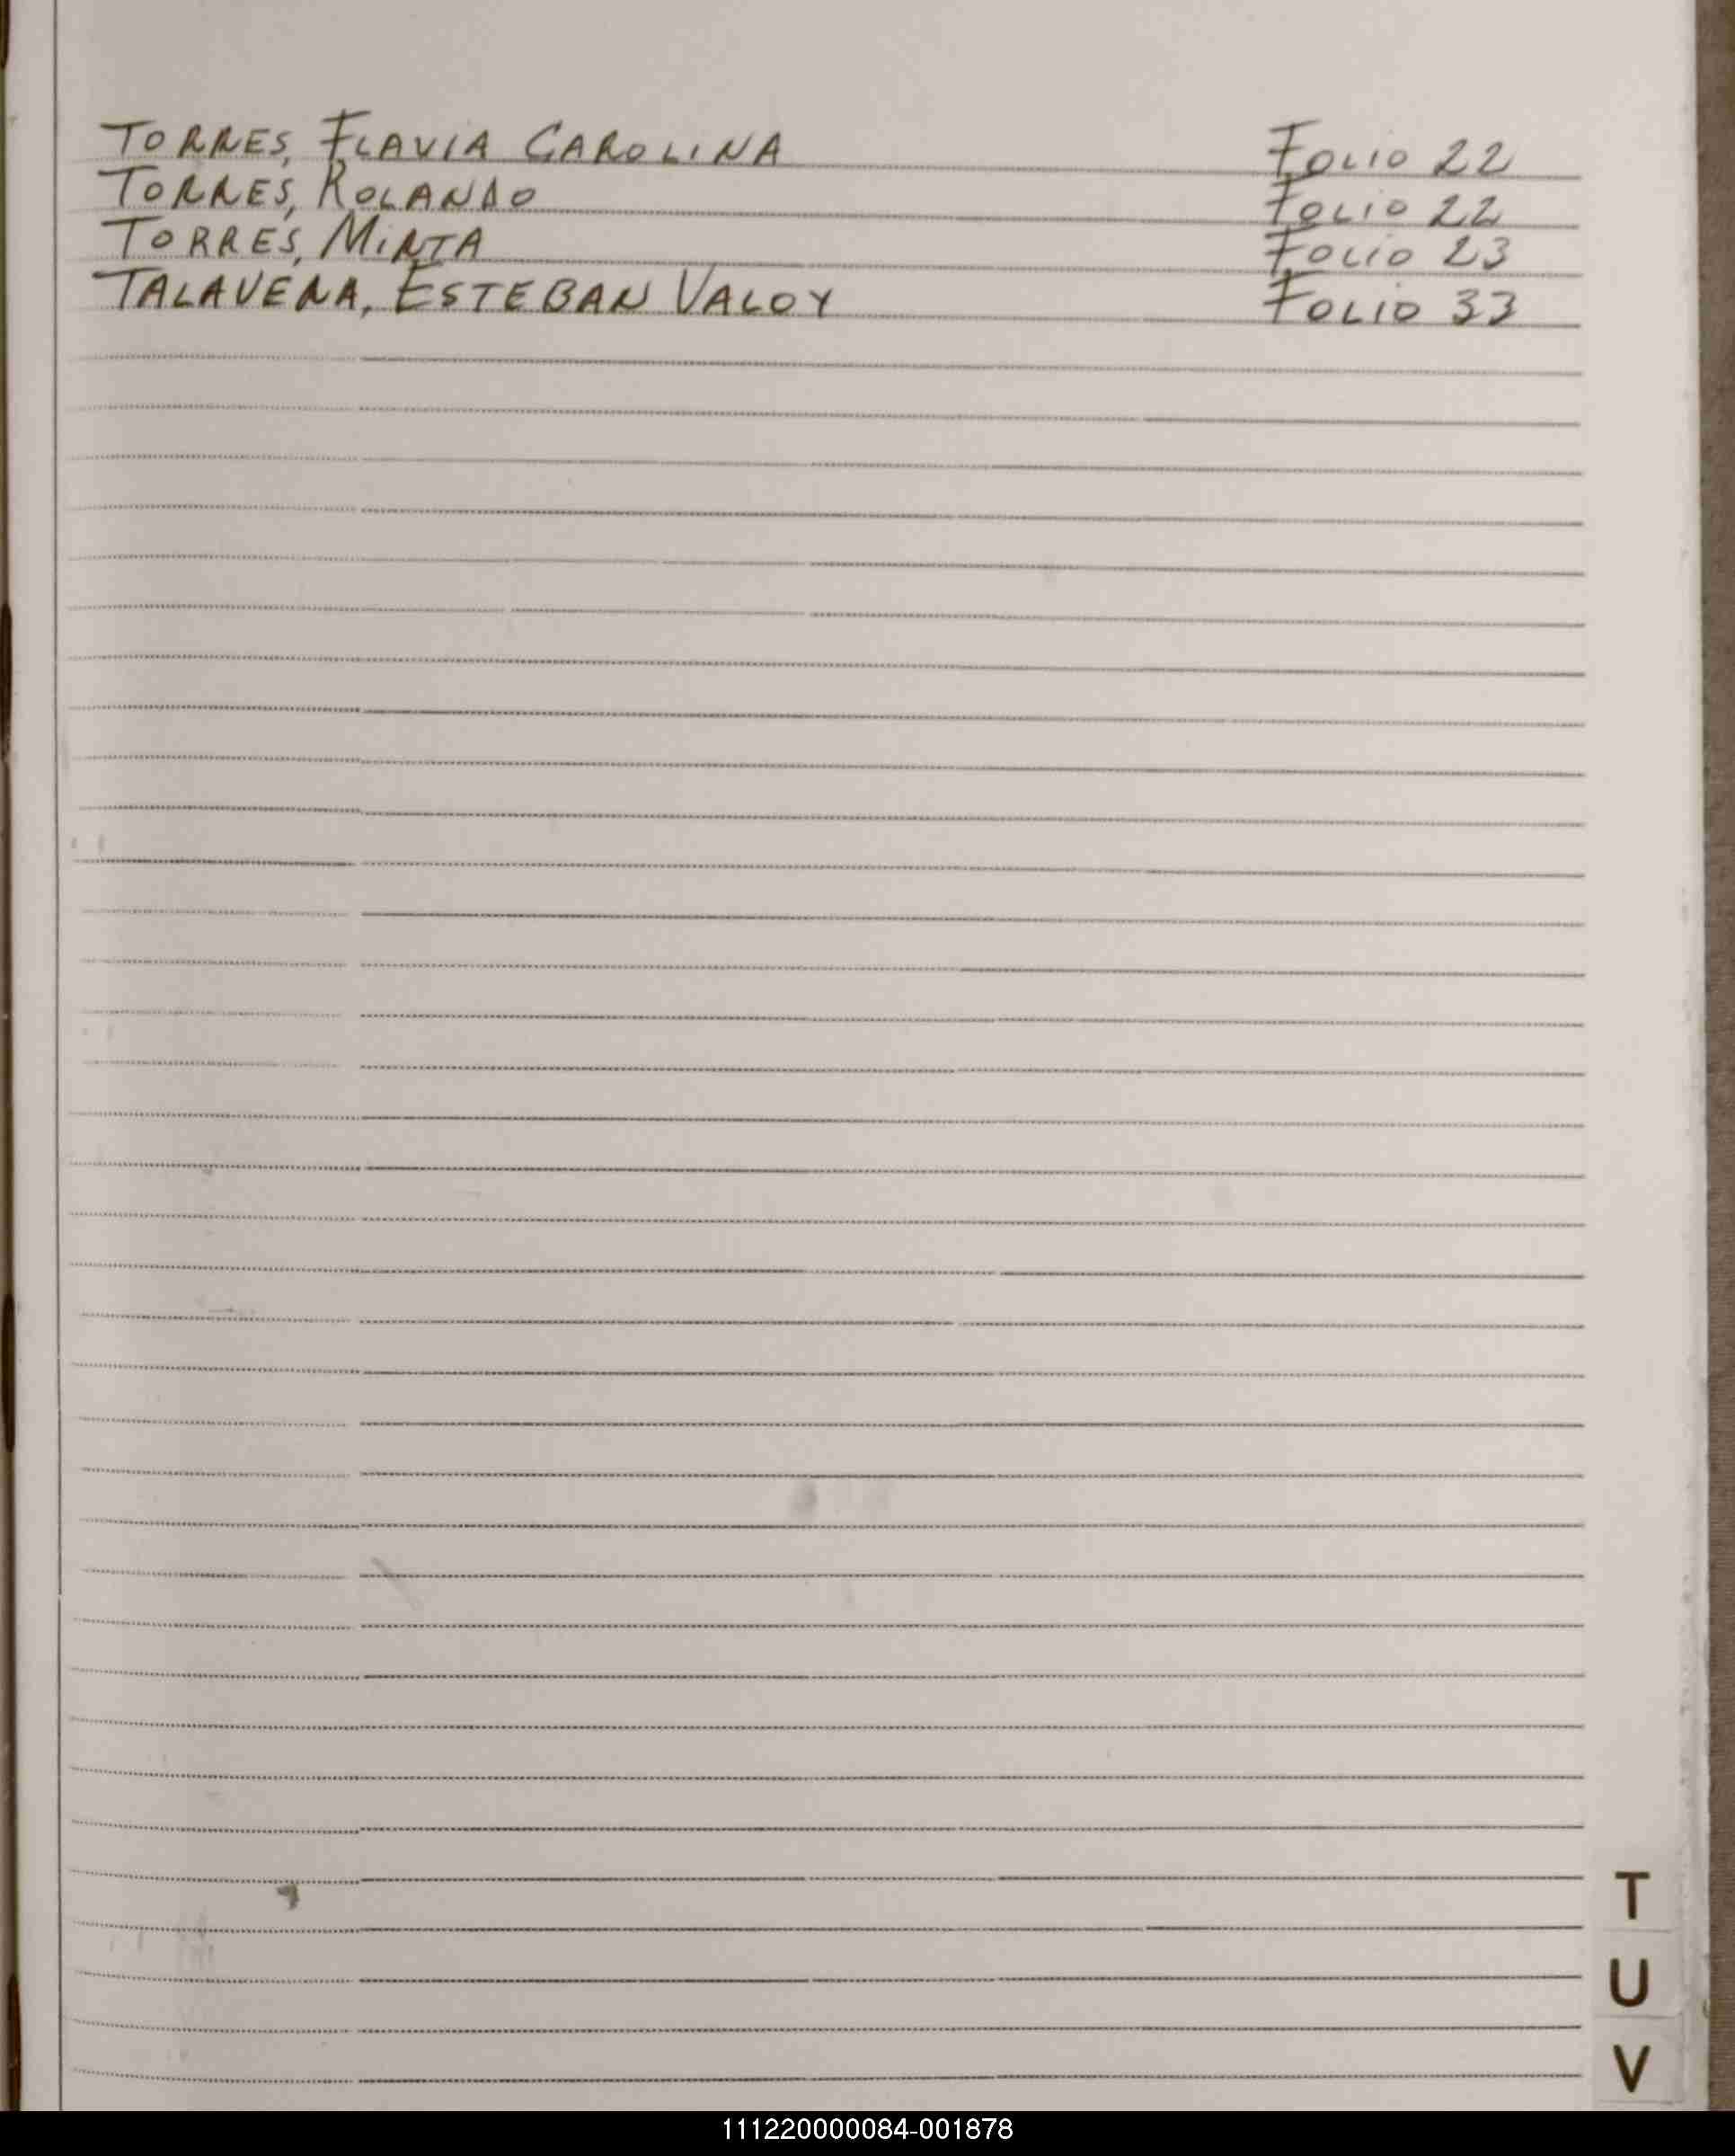 TORRES, FLAVIA CAROLINA Folio 22
TORRES, ROLANDO Folio 22
TORRES, MIRTA Folio 23
TALAVERA, ESTEBAN VALOY Folio 33
T
U
V
111220000084-001878